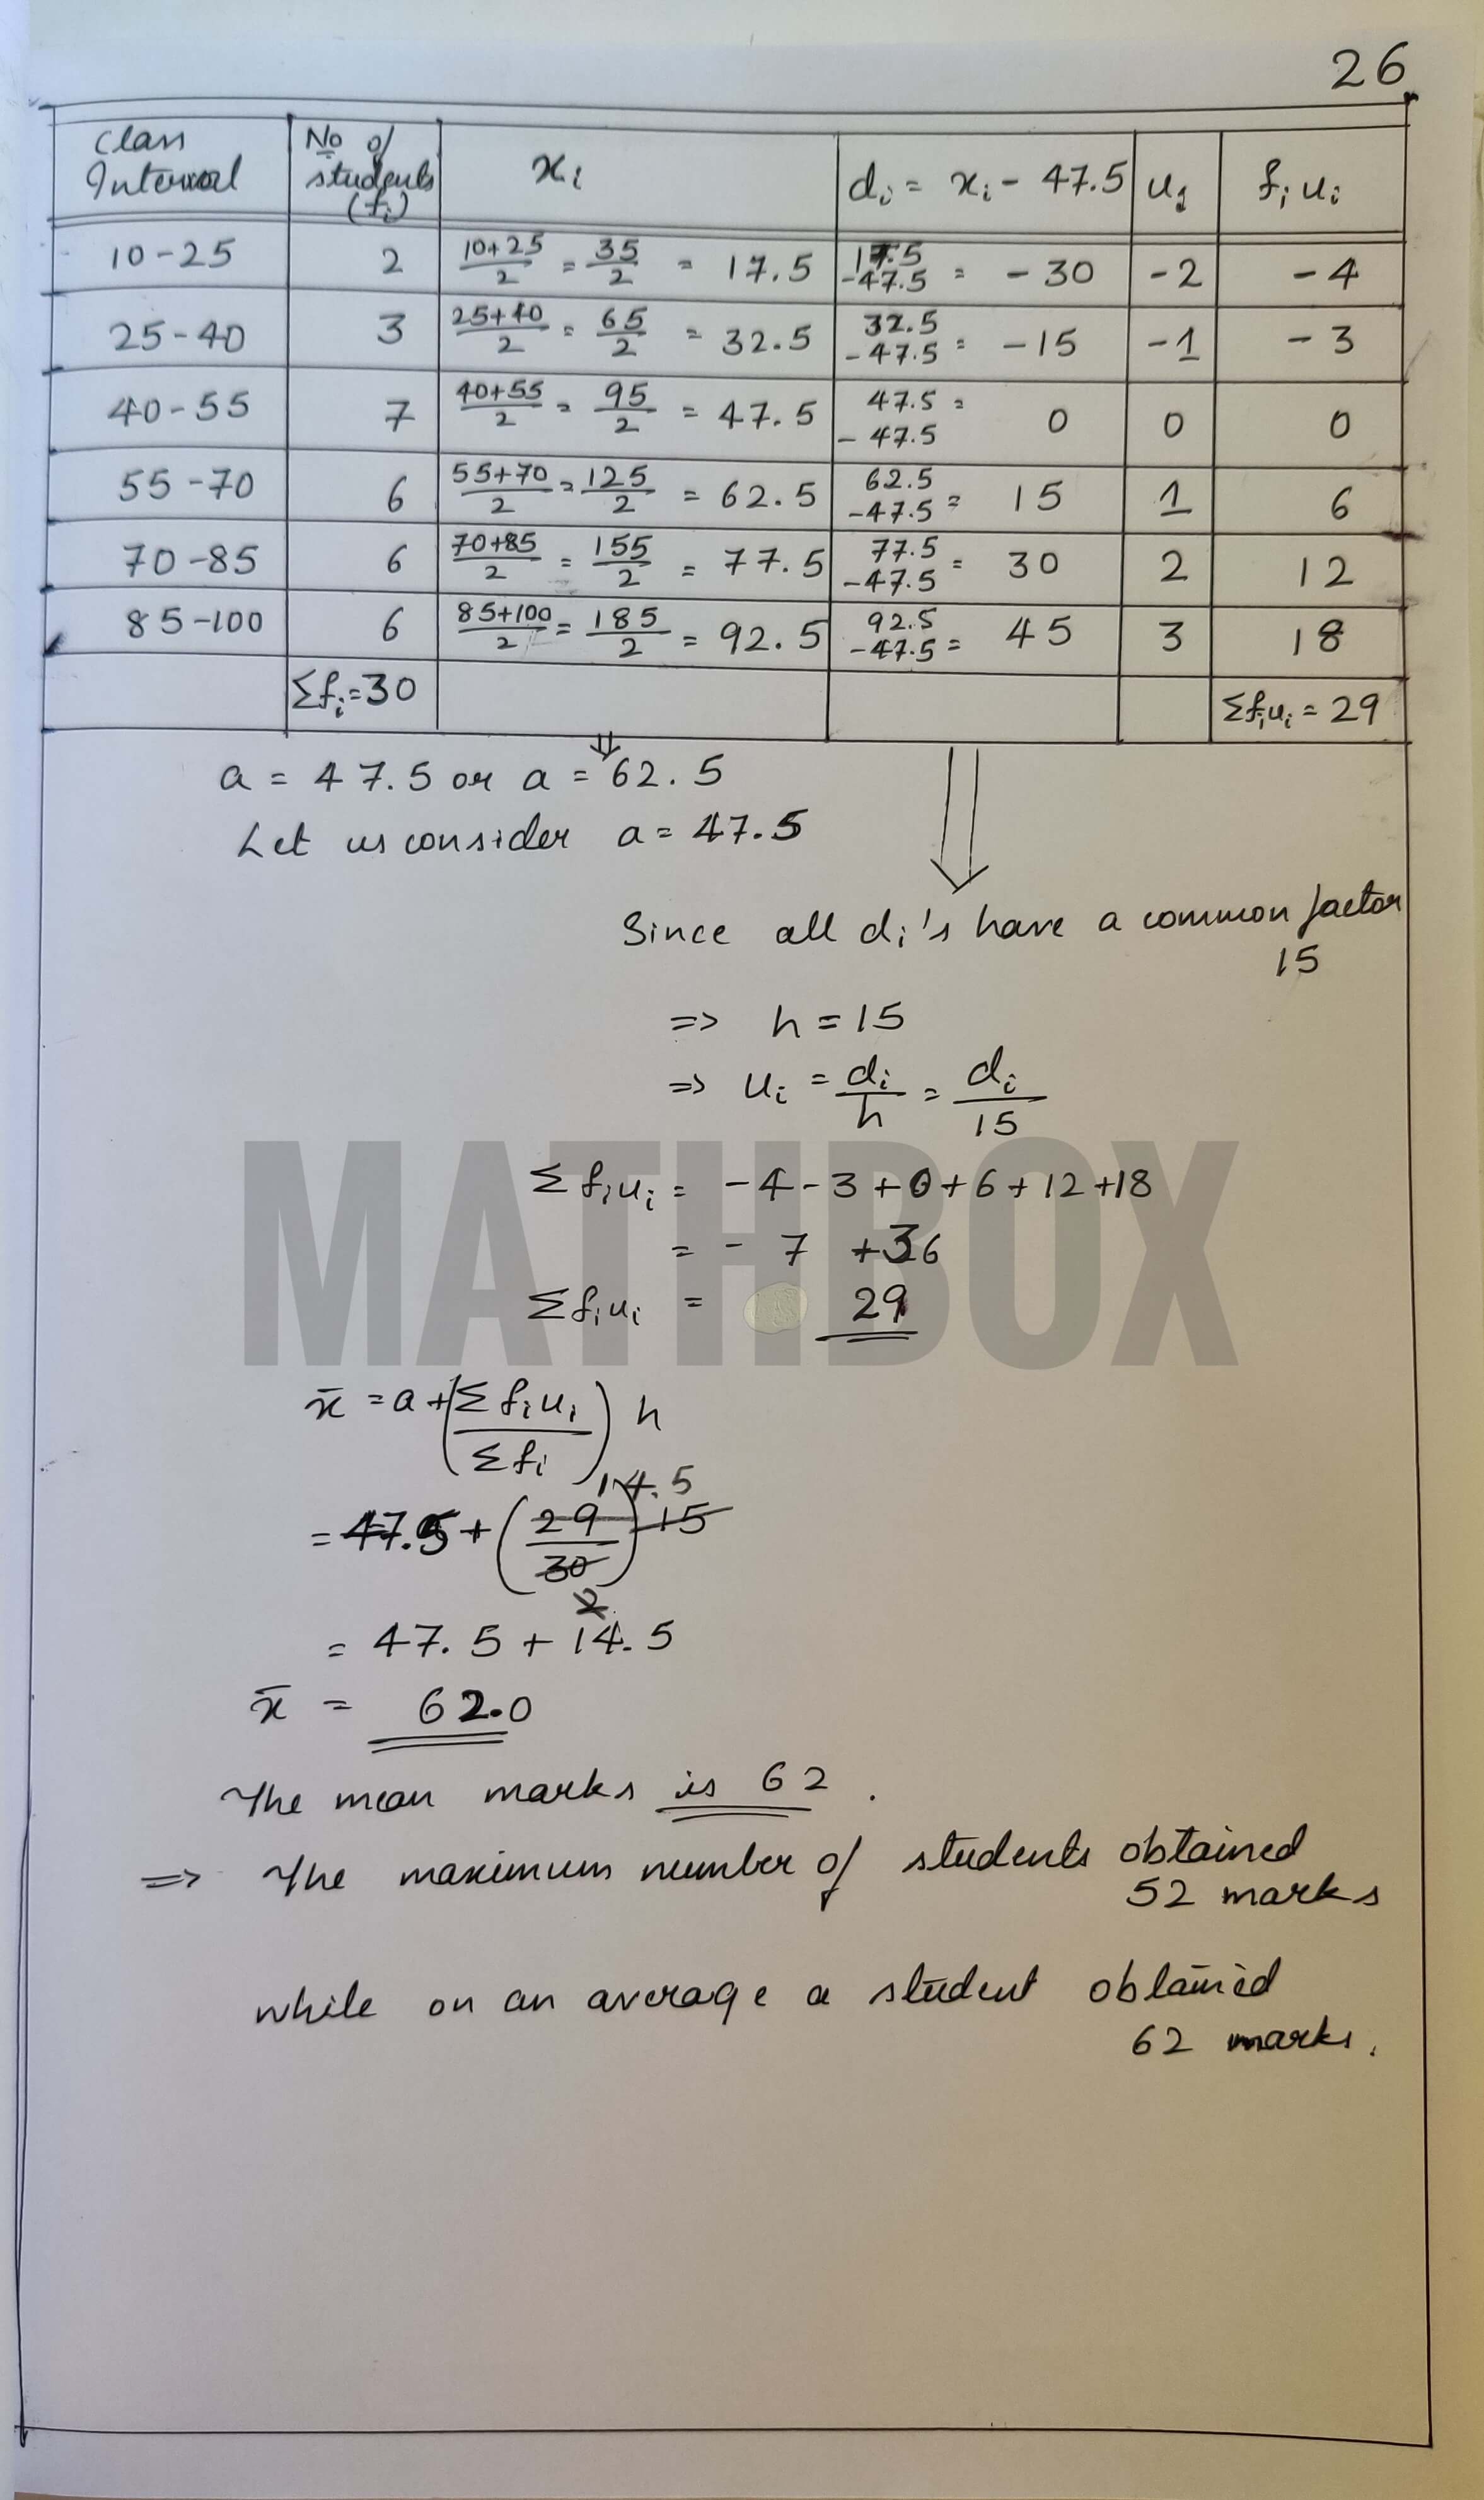 26
Class Interval | No of students (fi) | xi | di = xi - 47.5 | ui | fi ui
10-25 | 2 | (10+25)/2 = 35/2 = 17.5 | 17.5 -47.5 = -30 | -2 | -4
25-40 | 3 | (25+40)/2 = 65/2 = 32.5 | 32.5 -47.5 = -15 | -1 | -3
40-55 | 7 | (40+55)/2 = 95/2 = 47.5 | 47.5 -47.5 = 0 | 0 | 0
55-70 | 6 | (55+70)/2 = 125/2 = 62.5 | 62.5 -47.5 = 15 | 1 | 6
70-85 | 6 | (70+85)/2 = 155/2 = 77.5 | 77.5 -47.5 = 30 | 2 | 12
85-100 | 6 | (85+100)/2 = 185/2 = 92.5 | 92.5 -47.5 = 45 | 3 | 18
Σfi = 30 | Σfiui = 29
⇓
a = 47.5 or a = 62.5
Let us consider a = 47.5
⇓
Since all di's have a common factor
15
=> h = 15
=> ui = di/h = di/15
MATHBOX
Σfiui = -4-3+0+6+12+18
= - 7 +36
Σfiui = 29
x̄ = a + (Σfiui/Σfi) h
14.5
= 47.5 + (29/30) 15
2
= 47.5 + 14.5
x̄ = 62.0
The mean marks is 62.
=> The maximum number of students obtained
52 marks
while on an average a student obtained
62 marks.